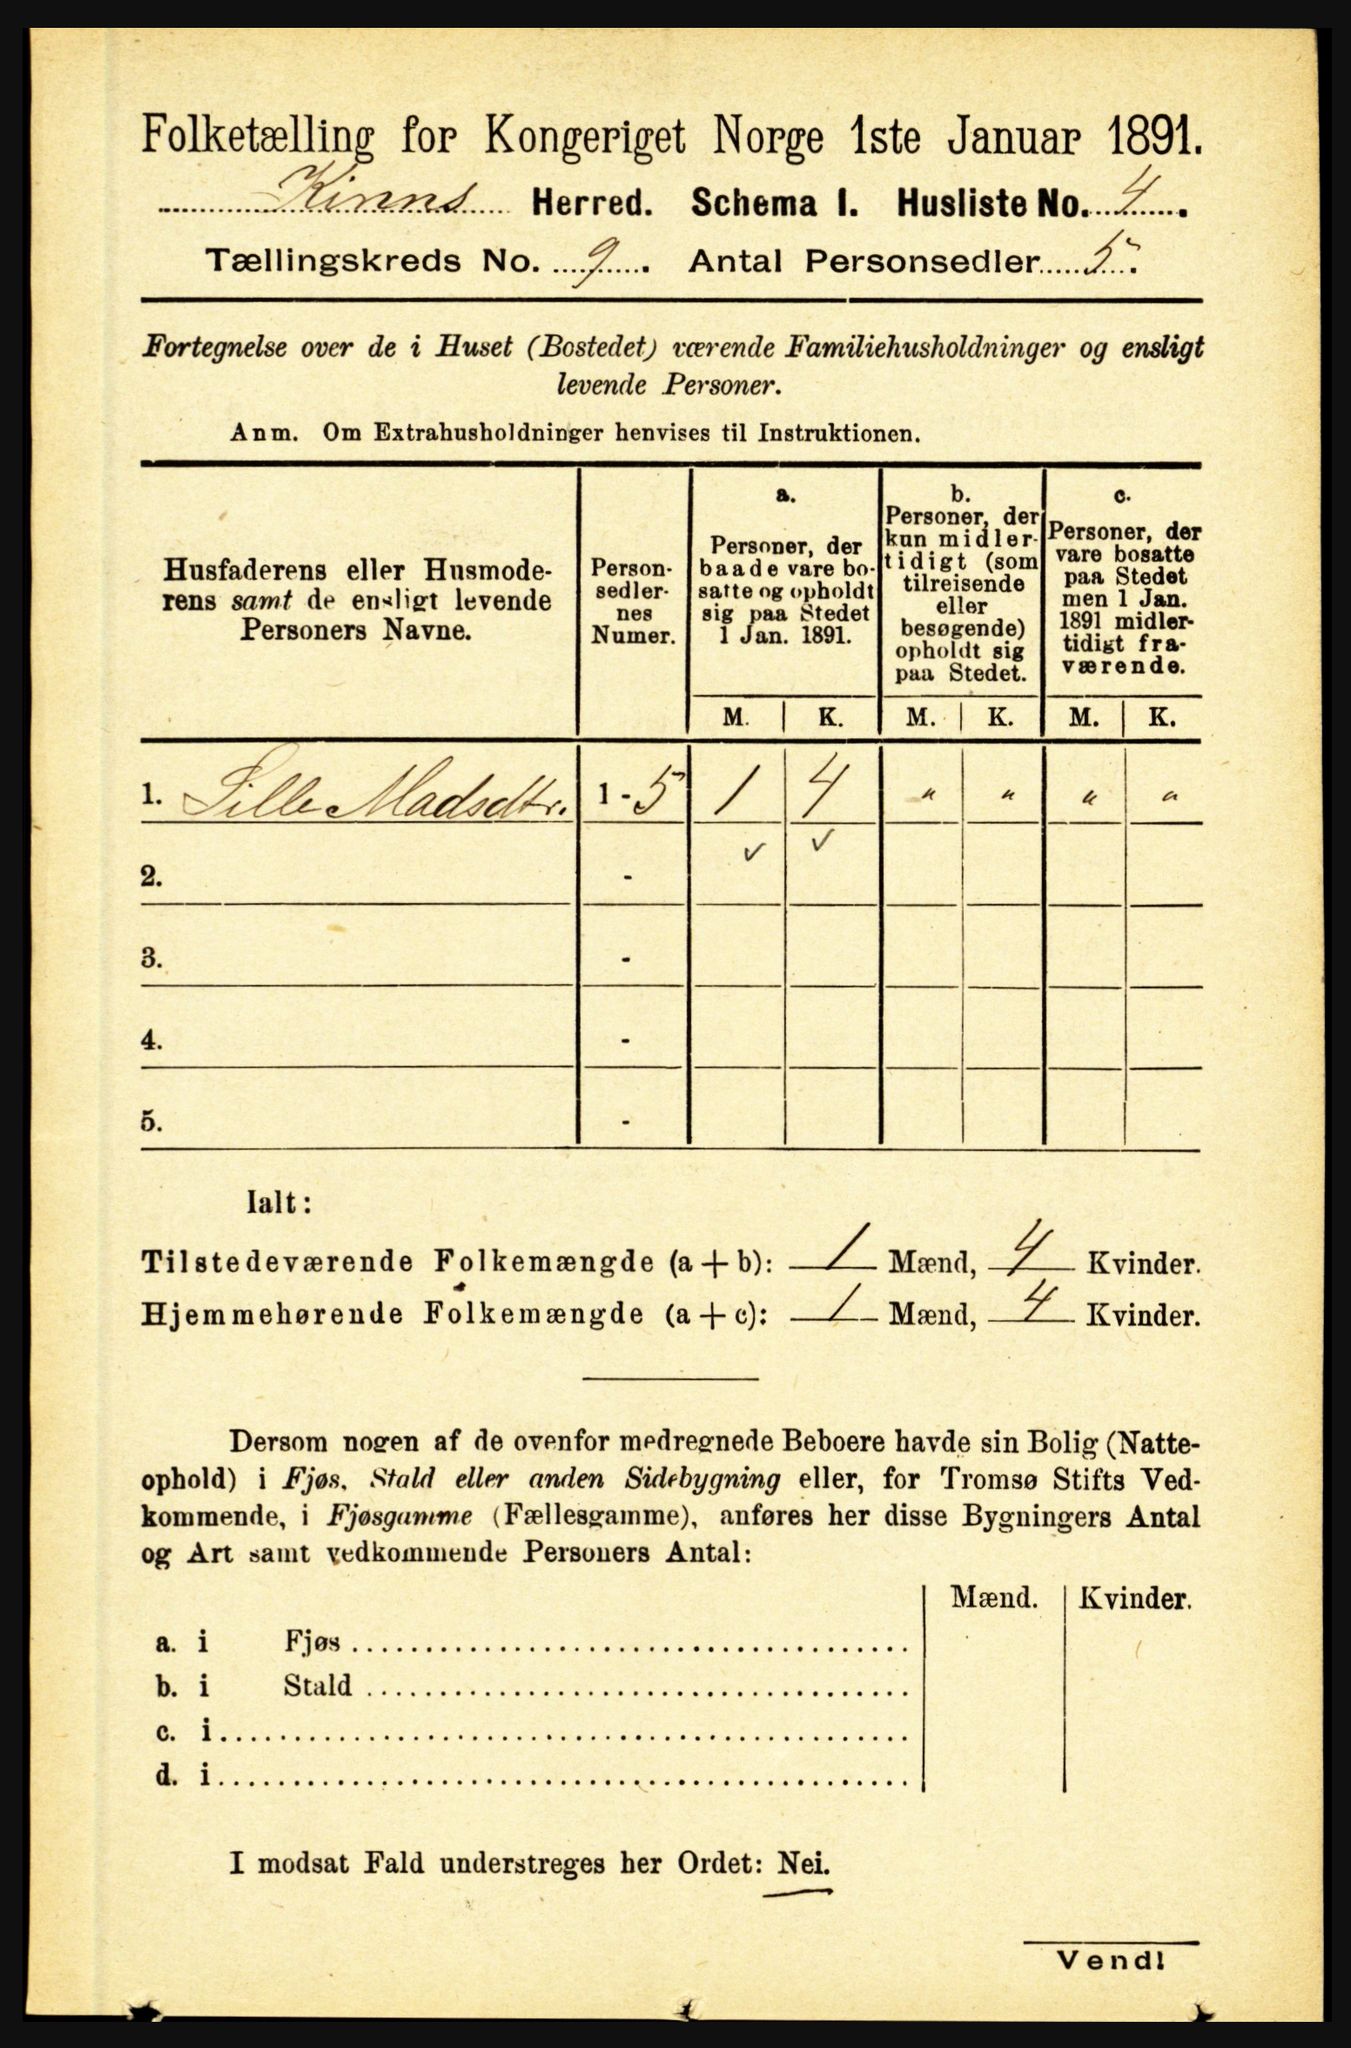 Folketælling for Kongeriget Norge 1ste Januar 1891.
Kinns Herred. Schema I. Husliste No. 4.
Tællingskreds No. 9. Antal Personsedler 5.
Fortegnelse over de i Huset (Bostedet) værende Familiehusholdninger og ensligt
levende Personer.
Anm. Om Extrahusholdninger henvises til Instruktionen.
Husfaderens eller Husmode-
rens samt de ensligt levende
Personers Navne.
Person-
sedler-
nes
Numer.
a.
Personer, der
baade vare bo-
satte og opholdt
sig paa Stedet
1 Jan. 1891.
b.
Personer, der
kun midler-
tidigt (som
tilreisende
eller
besøgende)
opholdt sig
paa Stedet.
c.
Personer, der
vare bosatte
paa Stedet
men 1 Jan.
1891 midler-
tidigt fra-
værende.
M. K. M. K. M. K.
1. Sille Madsdtr. 1 - 5 1 4 " " " "
✓ ✓
2. -
3. -
4. -
5. -
Ialt:
Tilstedeværende Folkemængde (a + b): 1 Mænd, 4 Kvinder.
Hjemmehørende Folkemængde (a + c): 1 Mænd, 4 Kvinder.
Dersom nogen af de ovenfor medregnede Beboere havde sin Bolig (Natte-
ophold) i Fjøs, Stald eller anden Sidebygning eller, for Tromsø Stifts Ved-
kommende, i Fjøsgamme (Fællesgamme), anføres her disse Bygningers Antal
og Art samt vedkommende Personers Antal:
Mænd. Kvinder.
a. i Fjøs
b. i Stald
c. i
d. i
I modsat Fald understreges her Ordet: Nei.
Vend!